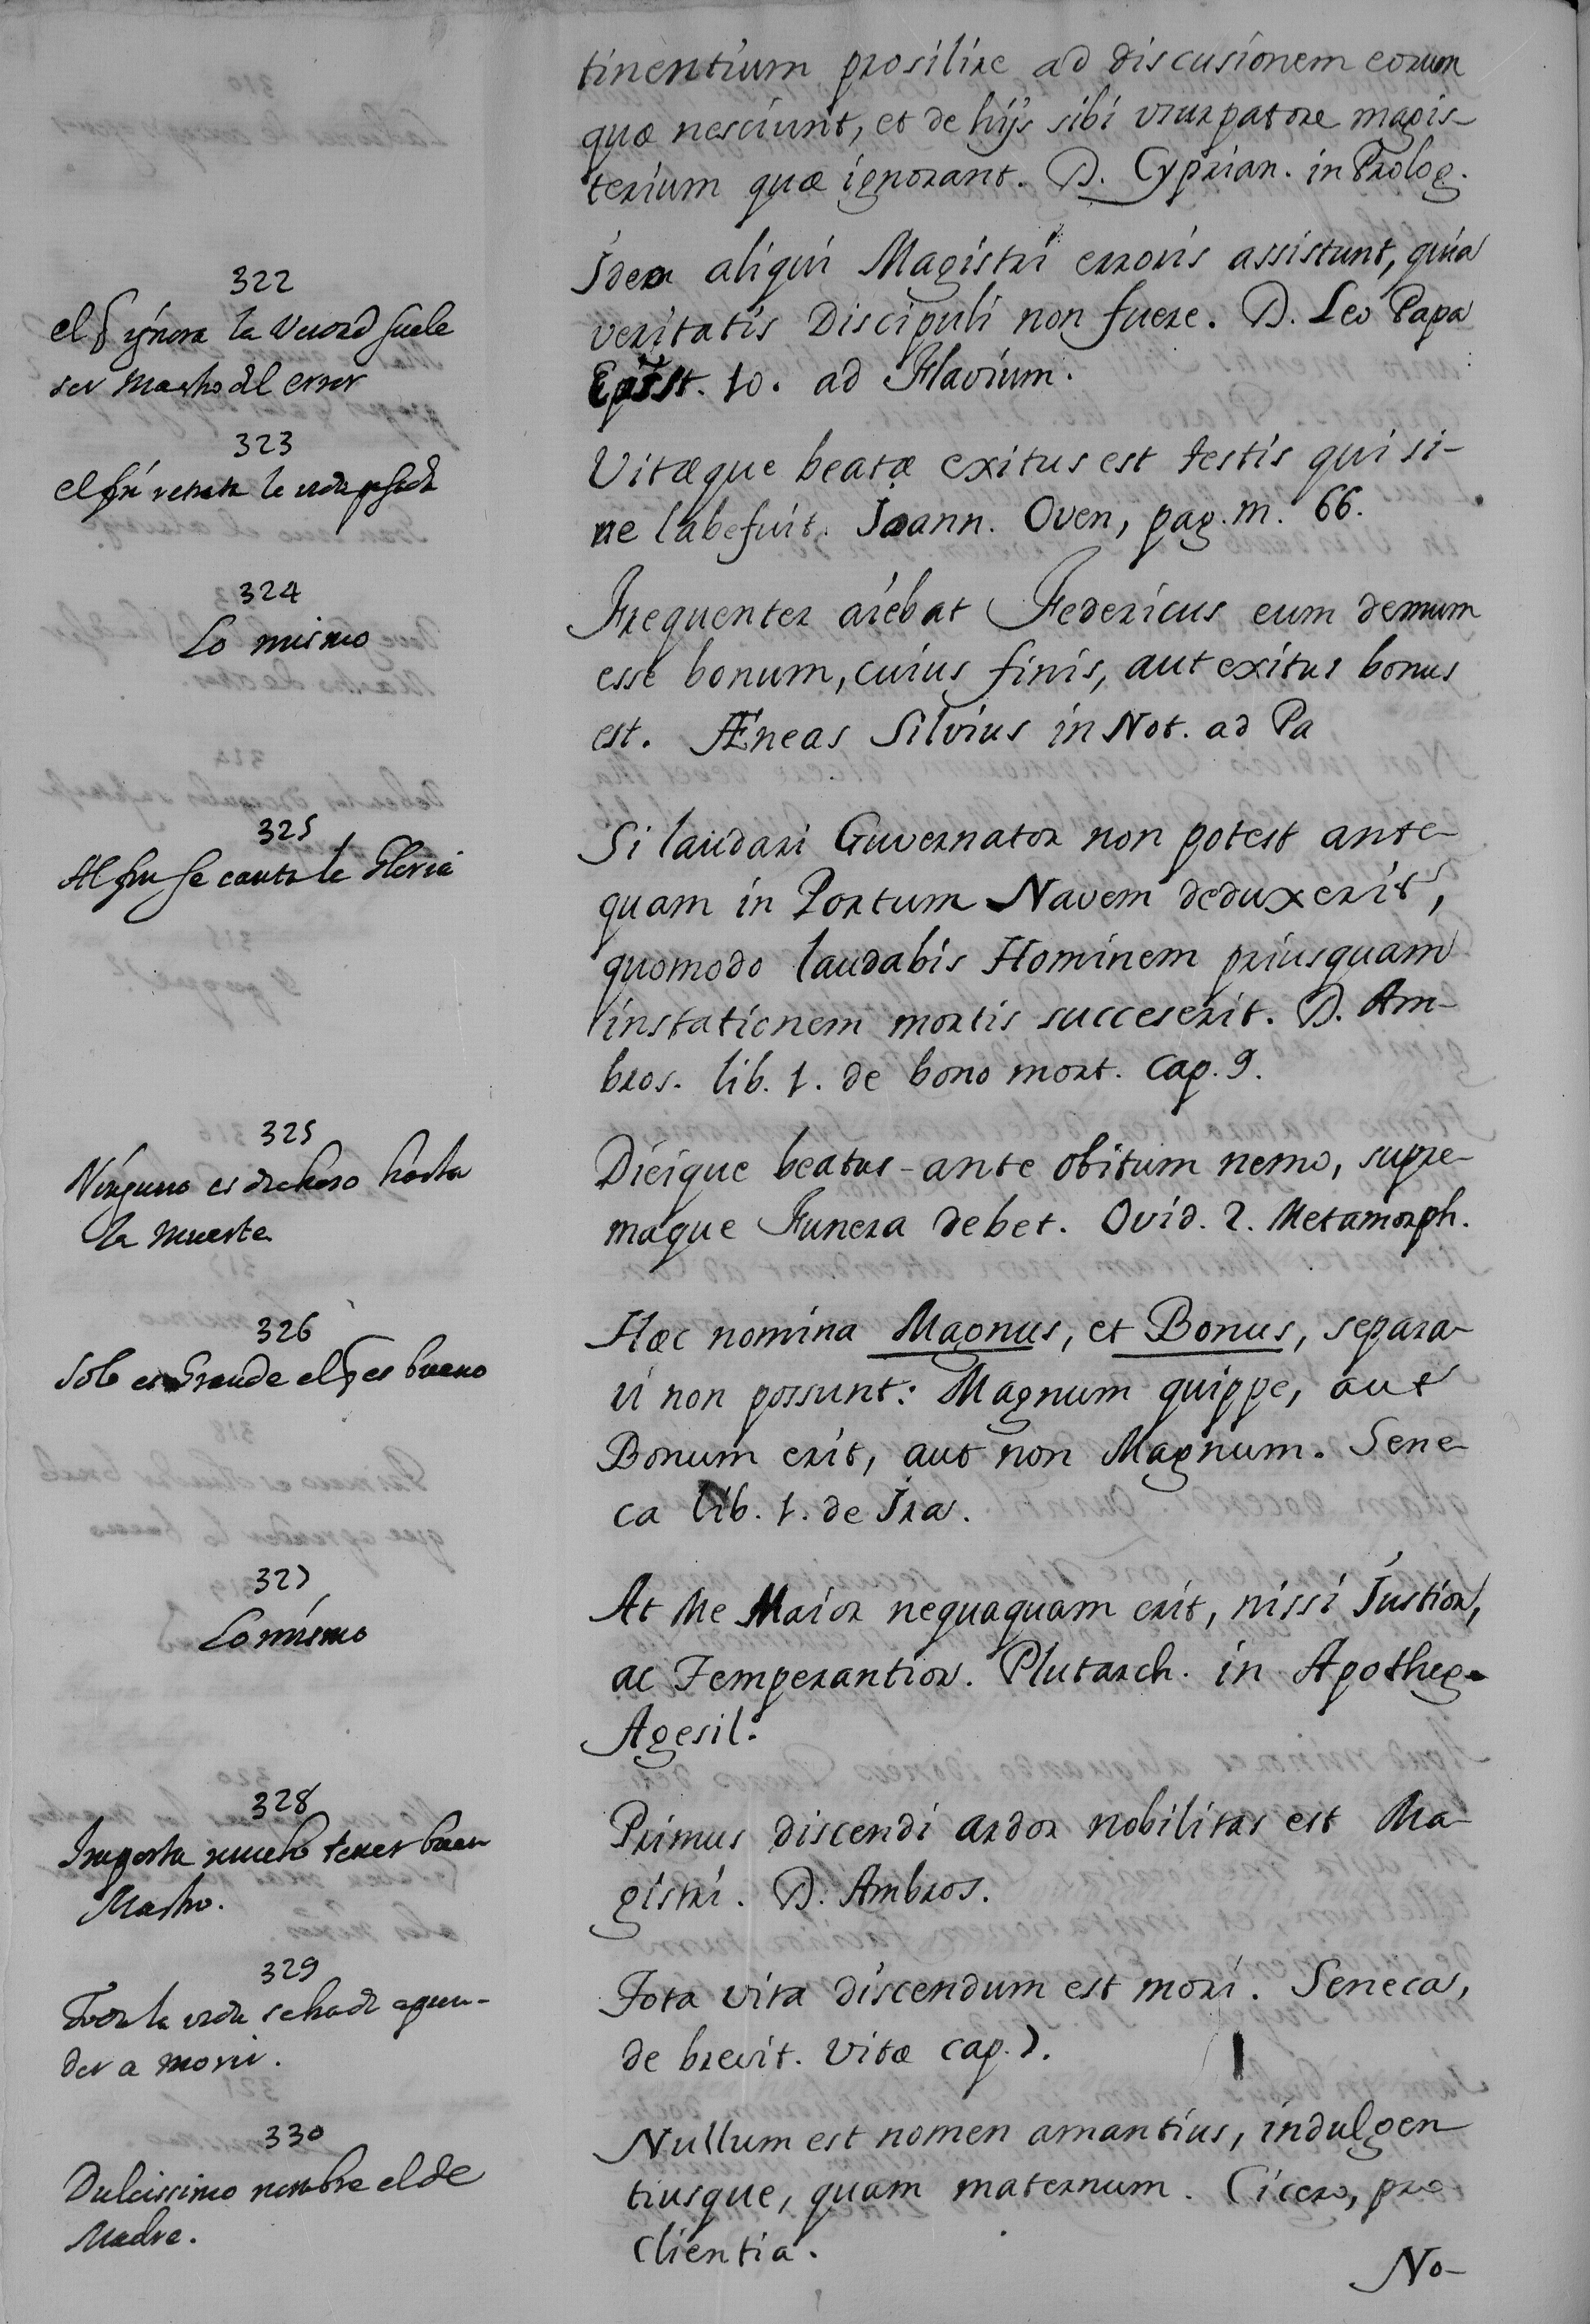 tinentium prosilire ad discusionem eorum
quæ nesciunt, et de hijs sibi vsurpatore magis-
terium quæ ignorant. D. Cyprian. in Prolog.
322
el q ignora la verdad suele
ser Maestro del error
Ideo aliqui Magistri erroris assistunt, quia
veritatis Discipuli non fuere. D. Leo Papa
Epist. 10. ad Flavium.
323
el fin retrata la vida pasada
Vitæque beatæ exitus est testis qui si-
ne labe fuit. Joann. Oven, pag. m. 66.
324
Lo mismo
Frequenter aiebat Federicus eum demum
esse bonum, cuius finis, aut exitus bonus
est. Æneas Silvius in Not. ad Pa
325
Al fin se canta la Gloria
Si laudari Guvernator non potest ante-
quam in Portum Navem deduxerit,
quomodo laudabis Hominem priusquam
instationem mortis succeserit. D. Am-
bros. lib. 1. de bono mort. Cap. 9.
325
Ninguno es dichoso hasta
la muerte
Dicique beatus - ante obitum nemo, supre-
maque Funera debet. Ovid. 2. Metamorph.
326
Solo es Grande el q es bueno
Hæc nomina Magnus, et Bonus, separa-
ri non possunt: Magnum quippe, aut
Bonum erit, aut non Magnum. Sene-
ca lib. 1. de Ira.
327
Lo mismo
At Me Maior nequaquam erit, nissi Justior,
ac Temperantior. Plutarch. in Apotheg.
Agesil.
328
Importa mucho tener buen
Mastro.
Primus discendi ardor nobilitas est Ma-
gistri. D. Ambros.
329
Toda la vida se ha de apren-
der a morir.
Tota vita discendum est mori. Seneca,
de brevit. Vitæ cap. 7.
330
Dulcissimo nombre el de
Madre.
Nullum est nomen amantius, indulgen
tiusque, quam maternum. Cicero, pro
Clientia.
No-